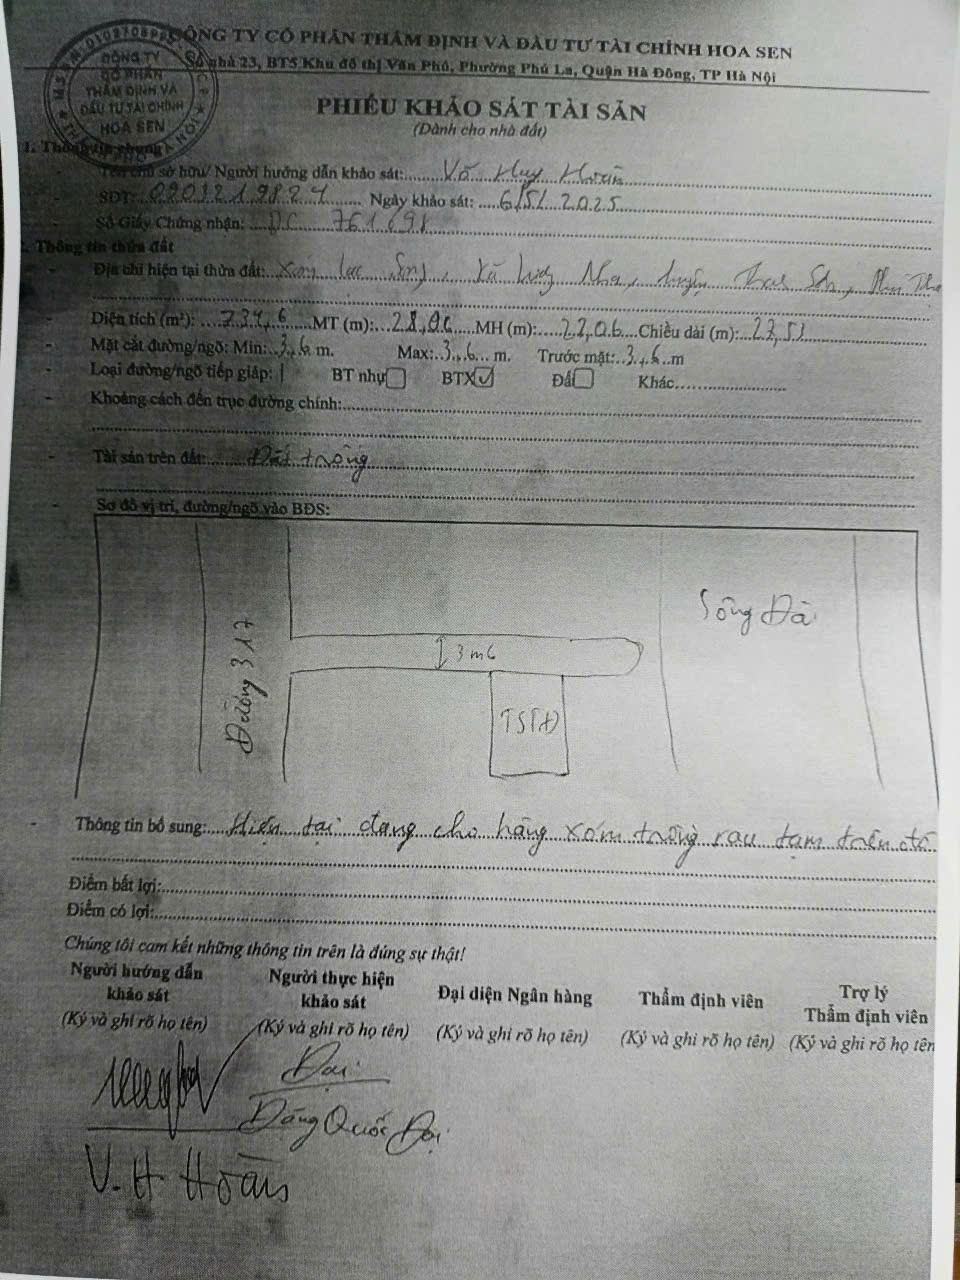 CÔNG TY CỔ PHẦN THẨM ĐỊNH VÀ ĐẦU TƯ TÀI CHÍNH HOA SEN
Số nhà 23, BT5 Khu đô thị Văn Phú, Phường Phú La, Quận Hà Đông, TP Hà Nội
CÔNG TY
CỔ PHẦN
THẨM ĐỊNH VÀ
ĐẦU TƯ TÀI CHÍNH
HOA SEN
PHIẾU KHẢO SÁT TÀI SẢN
(Dành cho nhà đất)
1. Thông tin chung
- Tên chủ sở hữu/ Người hướng dẫn khảo sát: Võ Huy Hoàn
- SĐT: Ngày khảo sát: 6/5/2025
- Số Giấy Chứng nhận:
2. Thông tin thửa đất
- Địa chỉ hiện tại thửa đất: Xóm Sông, Xã Lương Nha, huyện Thanh Sơn, Phú Thọ
- Diện tích (m²): 734,6 MT (m): 28,06 MH (m): 22,06 Chiều dài (m): 27,53
- Mặt cắt đường/ngõ: Min: 3,6 m. Max: 3,6 m. Trước mặt: 3,6 m
- Loại đường/ngõ tiếp giáp: BT nhự BTX ✓ Đất Khác
- Khoảng cách đến trục đường chính:
- Tài sản trên đất: Đất trống
- Sơ đồ vị trí, đường/ngõ vào BĐS:
Đường 317
3m6
TSTĐ
Sông Đà
- Thông tin bổ sung: Hiện tại đang cho hàng xóm trồng rau tạm trên đó
Điểm bất lợi:
Điểm có lợi:
Chúng tôi cam kết những thông tin trên là đúng sự thật!
Người hướng dẫn khảo sát Người thực hiện khảo sát Đại diện Ngân hàng Thẩm định viên Trợ lý Thẩm định viên
(Ký và ghi rõ họ tên) (Ký và ghi rõ họ tên) (Ký và ghi rõ họ tên) (Ký và ghi rõ họ tên) (Ký và ghi rõ họ tên
Đại
Đặng Quốc Đại
V. H Hoàn